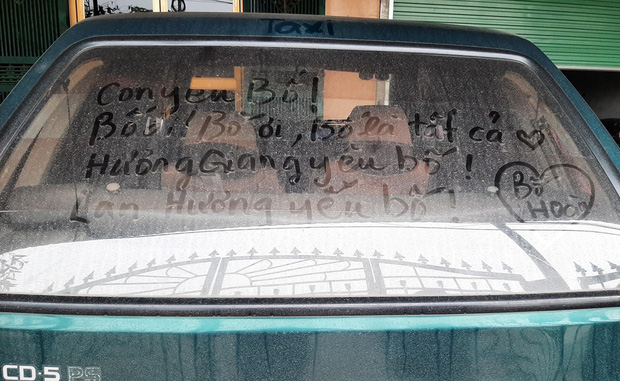 Taxi
Con yêu Bố!
Bố ơi! Bố ơi, Bố là tất cả
Hương Giang yêu bố!
Lan Hương yêu bố!
Bố
CD·5 PS